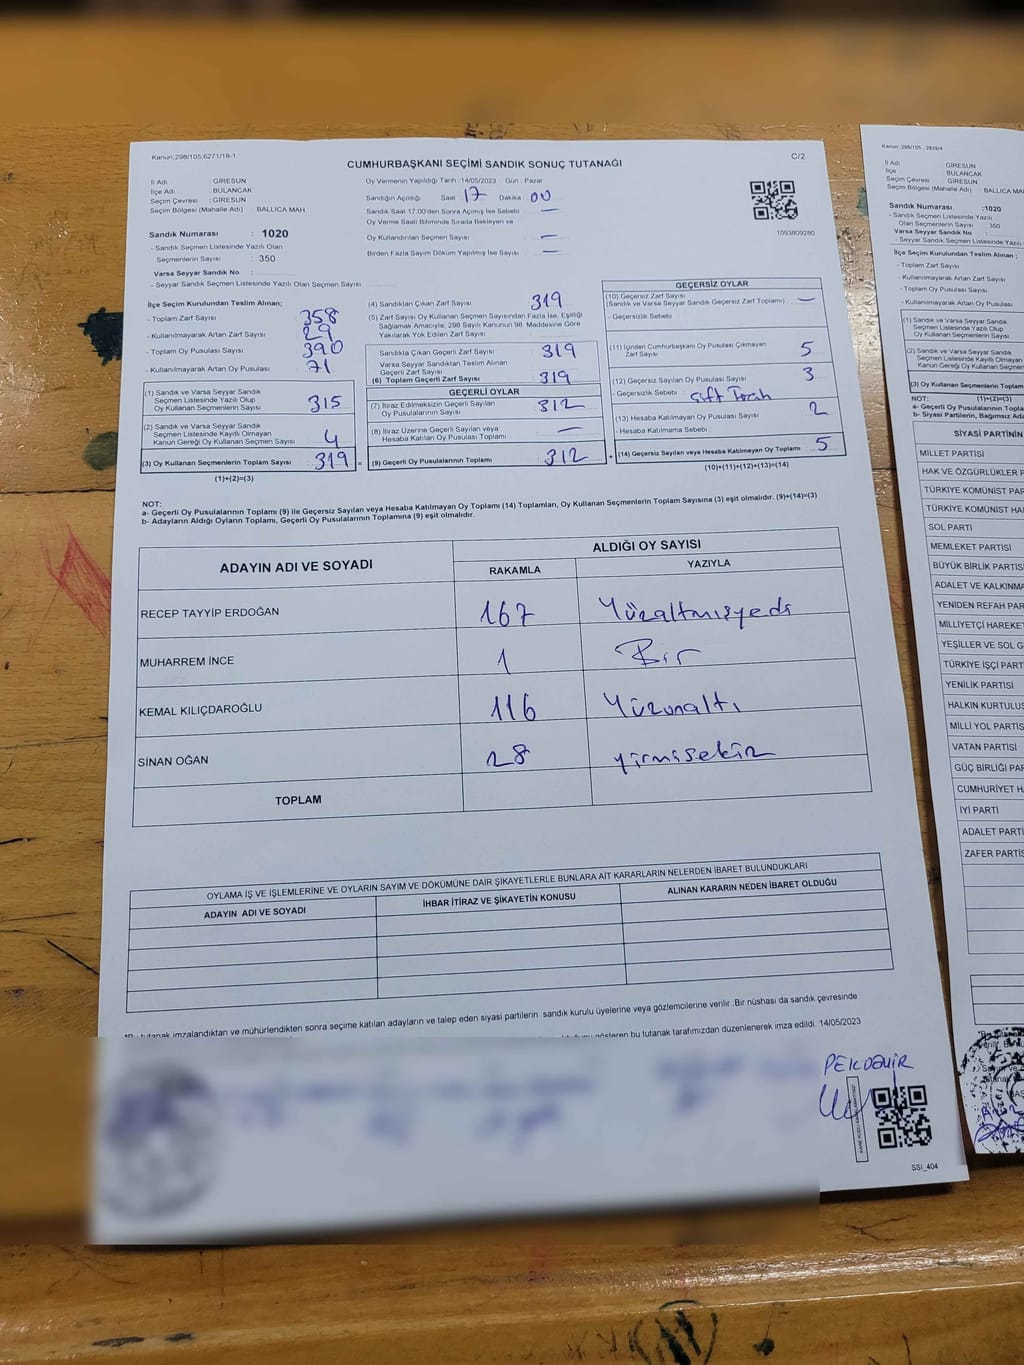 Kanun:298/105,6271/18-1
CUMHURBAŞKANI SEÇİMİ SANDIK SONUÇ TUTANAĞI
C/2
İl Adı : GİRESUN
İlçe Adı : BULANCAK
Seçim Çevresi : GİRESUN
Seçim Bölgesi (Mahalle Adı) : BALLICA MAH
Sandık Numarası : 1020
- Sandık Seçmen Listesinde Yazılı Olan
Seçmenlerin Sayısı : 350
Varsa Seyyar Sandık No :
- Seyyar Sandık Seçmen Listesinde Yazılı Olan Seçmen Sayısı
Oy Vermenin Yapıldığı Tarih : 14/05/2023 Gün : Pazar
Sandığın Açıldığı Saat 17 Dakika 00
Sandık Saat 17.00'den Sonra Açılmış İse Sebebi : —
Oy Verme Saati Bitiminde Sırada Bekleyen ve
Oy Kullandırılan Seçmen Sayısı : —
Birden Fazla Sayım Döküm Yapılmış İse Sayısı : —
1093809280
İlçe Seçim Kurulundan Teslim Alınan;
- Toplam Zarf Sayısı : 358
- Kullanılmayarak Artan Zarf Sayısı : 29
- Toplam Oy Pusulası Sayısı : 390
- Kullanılmayarak Artan Oy Pusulası : 71
(1) Sandık ve Varsa Seyyar Sandık
Seçmen Listesinde Yazılı Olup
Oy Kullanan Seçmenlerin Sayısı 315
(2) Sandık ve Varsa Seyyar Sandık
Seçmen Listesinde Kayıtlı Olmayan
Kanun Gereği Oy Kullanan Seçmen Sayısı 4
(3) Oy Kullanan Seçmenlerin Toplam Sayısı 319
(1)+(2)=(3)
(4) Sandıktan Çıkan Zarf Sayısı 319
(5) Zarf Sayısı Oy Kullanan Seçmen Sayısından Fazla İse, Eşitliği
Sağlamak Amacıyla, 298 Sayılı Kanunun 98. Maddesine Göre
Yakılarak Yok Edilen Zarf Sayısı
Sandıkta Çıkan Geçerli Zarf Sayısı 319
Varsa Seyyar Sandıktan Teslim Alınan
Geçerli Zarf Sayısı
(6) Toplam Geçerli Zarf Sayısı 319
GEÇERLİ OYLAR
(7) İtiraz Edilmeksizin Geçerli Sayılan
Oy Pusulalarının Sayısı 312
(8) İtiraz Üzerine Geçerli Sayılan veya
Hesaba Katılan Oy Pusulası Toplamı —
(9) Geçerli Oy Pusulalarının Toplamı 312
GEÇERSİZ OYLAR
(10) Geçersiz Zarf Sayısı
(Sandık ve Varsa Seyyar Sandık Geçersiz Zarf Toplamı) —
- Geçersizlik Sebebi :
(11) İçinden Cumhurbaşkanı Oy Pusulası Çıkmayan
Zarf Sayısı 5
(12) Geçersiz Sayılan Oy Pusulası Sayısı 3
- Geçersizlik Sebebi : Çift
(13) Hesaba Katılmayan Oy Pusulası Sayısı 2
- Hesaba Katılmama Sebebi :
(14) Geçersiz Sayılan veya Hesaba Katılmayan Oy Toplamı 5
(10)+(11)+(12)+(13)=(14)
NOT:
a- Geçerli Oy Pusulalarının Toplamı (9) ile Geçersiz Sayılan veya Hesaba Katılmayan Oy Toplamı (14) Toplamları, Oy Kullanan Seçmenlerin Toplam Sayısına (3) eşit olmalıdır. (9)+(14)=(3)
b- Adayların Aldığı Oyların Toplamı, Geçerli Oy Pusulalarının Toplamına (9) eşit olmalıdır.
ADAYIN ADI VE SOYADI
ALDIĞI OY SAYISI
RAKAMLA YAZIYLA
RECEP TAYYİP ERDOĞAN 167 Yüzaltmışyedi
MUHARREM İNCE 1 Bir
KEMAL KILIÇDAROĞLU 116 Yüzonaltı
SİNAN OĞAN 28 yirmisekiz
TOPLAM
OYLAMA İŞ VE İŞLEMLERİNE VE OYLARIN SAYIM VE DÖKÜMÜNE DAİR ŞİKAYETLERLE BUNLARA AİT KARARLARIN NELERDEN İBARET BULUNDUKLARI
ADAYIN ADI VE SOYADI İHBAR İTİRAZ VE ŞİKAYETİN KONUSU ALINAN KARARIN NEDEN İBARET OLDUĞU
*Bu tutanak imzalandıktan ve mühürlendikten sonra seçime katılan adayların ve talep eden siyasi partilerin sandık kurulu üyelerine veya gözlemcilerine verilir. Bir nüshası da sandık çevresinde
gösteren bu tutanak tarafımızdan düzenlenerek imza edildi. 14/05/2023
PEKDEMİR
SSI_404
Kanun: 298/105 ; 2839/4
İl Adı : GİRESUN
İlçe : BULANCAK
Seçim Çevresi : GİRESUN
Seçim Bölgesi (Mahalle Adı) : BALLICA MAH
Sandık Numarası :1020
- Sandık Seçmen Listesinde Yazılı
Olan Seçmenlerin Sayısı : 350
Varsa Seyyar Sandık No :
- Seyyar Sandık Seçmen Listesinde Yazılı
İlçe Seçim Kurulundan Teslim Alınan ;
- Toplam Zarf Sayısı
- Kullanılmayarak Artan Zarf Sayısı
- Toplam Oy Pusulası Sayısı
- Kullanılmayarak Artan Oy Pusulası
(1) Sandık ve Varsa Seyyar Sandık
Seçmen Listesinde Yazılı Olup
Oy Kullanan Seçmenlerin Sayısı
(2) Sandık ve Varsa Seyyar Sandık
Seçmen Listesinde Kayıtlı Olmayan
Kanun Gereği Oy Kullanan Seçmen
(3) Oy Kullanan Seçmenlerin Toplam
(1)+(2)=(3)
NOT:
a- Geçerli Oy Pusulalarının Toplamı
b- Siyasi Partilerin, Bağımsız
SİYASİ PARTİNİN
MİLLET PARTİSİ
HAK VE ÖZGÜRLÜKLER
TÜRKİYE KOMÜNİST
TÜRKİYE KOMÜNİST
SOL PARTİ
MEMLEKET PARTİSİ
BÜYÜK BİRLİK PARTİSİ
ADALET VE KALKINMA
YENİDEN REFAH
MİLLİYETÇİ HAREKET
YEŞİLLER VE SOL
TÜRKİYE İŞÇİ
YENİLİK PARTİSİ
HALKIN KURTULUŞ
MİLLİ YOL PARTİSİ
VATAN PARTİSİ
GÜÇ BİRLİĞİ
CUMHURİYET
İYİ PARTİ
ADALET PARTİ
ZAFER PARTİSİ